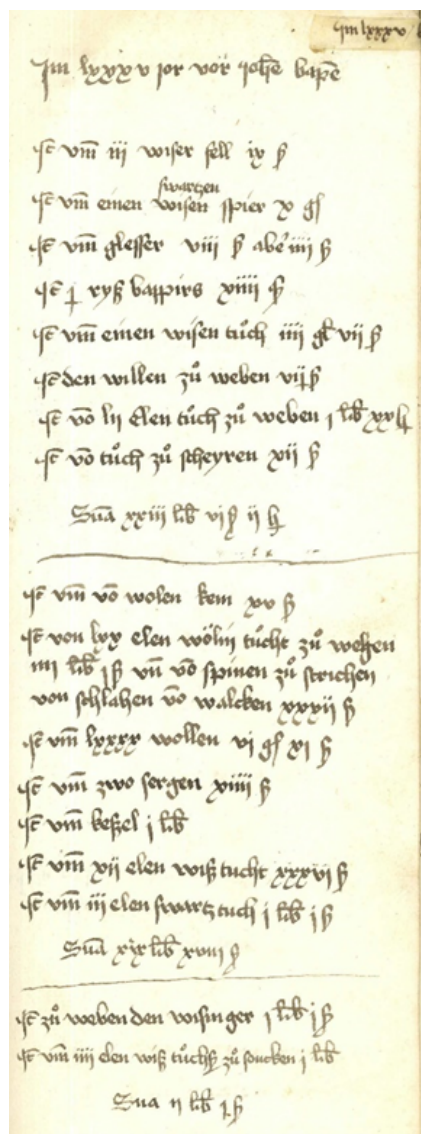 Jm lxxxv
Jm lxxxv jor vor joh̄e bapt̄e
It̄ vm̄ iii wiser fell ix ß
swartzen
It̄ vm̄ einen wisen spier x gl
It̄ vm̄ glesser viii ß aber iiii ß
It̄ j ryß bappirs xiiii ß
It̄ vm̄ einen wisen tůch iiii gl vii ß
It̄ den willen zů weben vij ß
It̄ vō lii elen tůch zů weben j lib̄ xx h
It̄ vō tůch zů scheyren xii ß
Sūa xxiii lib̄ vi ß ii h
It̄ vm̄ vō wolen kem xv ß
It̄ von lxx elen wölin tůcht zů weben
iiii lib̄ j ß vn̄ vō spinen zů strichen
von schlahen vō walcken xxxii ß
It̄ vm̄ lxxxx wollen vi gl xi ß
It̄ vm̄ zwo sergen xiiii ß
It̄ vm̄ keßel i lib̄
It̄ vm̄ xii elen wiß tucht xxxvi ß
It̄ vm̄ iii elen swartz tuch i lib̄ i ß
Sūa xix lib̄ xviii ß
It̄ zů weben den wisinger j lib̄ j ß
It̄ vm̄ iiii elen wiß tůchß zů soucken i lib̄
Sūa ii lib̄ j ß